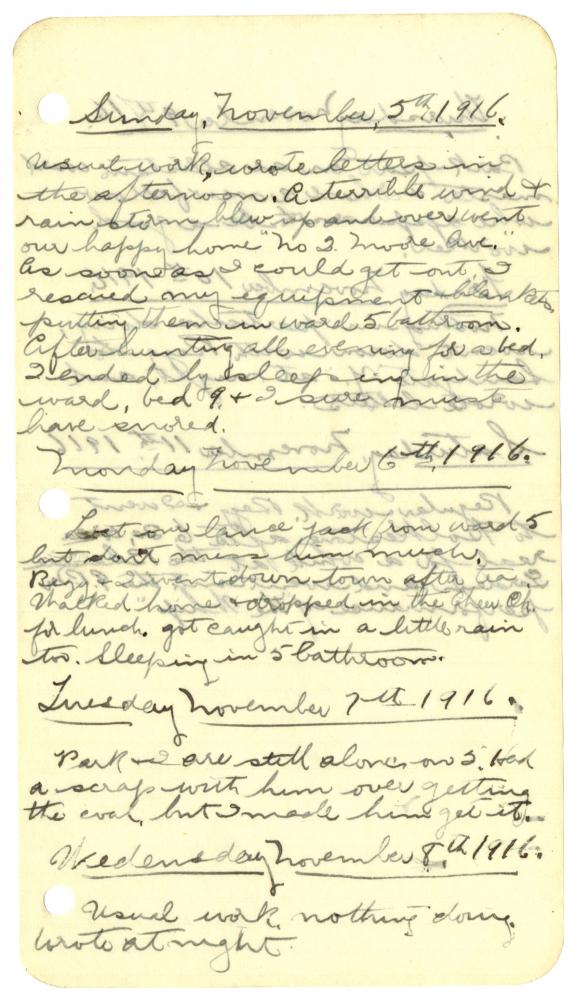 Sunday, November, 5th, 1916.
Usual work, wrote letters in
the afternoon. A terrible wind &
rain storm blew up and over went
our happy home "No 2. Moore Ave."
As soon as I could get out, I
rescued my equipment blankets,
putting them in ward 5 bathroom.
After hunting all evening for a bed,
I ended by sleeping in the
ward, bed 9, & I sure must
have snored.
Monday November 6th, 1916.
Lost on lance jack from ward 5
but don't miss him much.
Regg & I went down town after tea.
Walked "home" & dropped in the Ch.
for lunch. got caught in a little rain
too. Sleeping in 5 bathroom.
Tuesday November 7th 1916.
Park & I are still alone on 5. Had
a scrap with him over getting
the coal, but I made him get it.
Wedensday November 8th 1916.
Usual work, nothing doing.
Wrote at night.